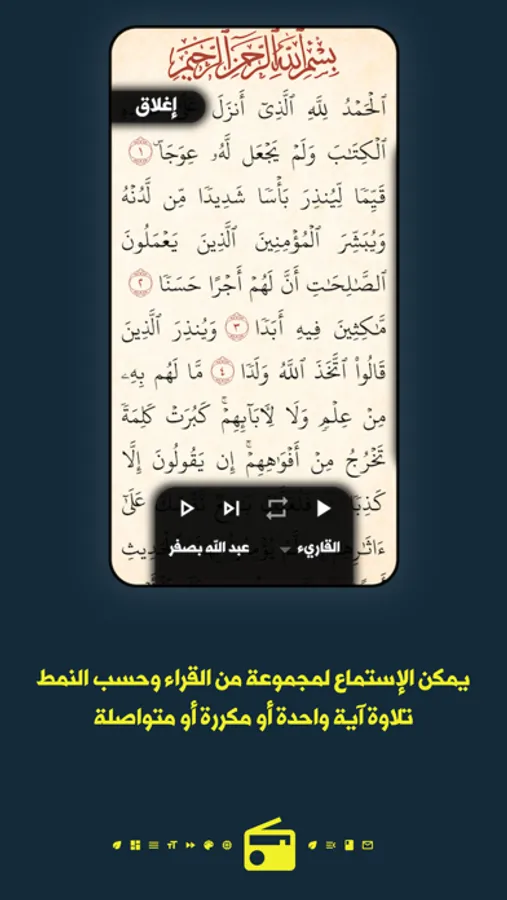 بِسْمِ ٱللَّهِ ٱلرَّحْمَٰنِ ٱلرَّحِيمِ
ٱلْحَمْدُ لِلَّهِ ٱلَّذِىٓ أَنزَلَ
إغلاق
ٱلْكِتَٰبَ وَلَمْ يَجْعَل لَّهُۥ عِوَجَاۜ ١
قَيِّمًا لِّيُنذِرَ بَأْسًا شَدِيدًا مِّن لَّدُنْهُ
وَيُبَشِّرَ ٱلْمُؤْمِنِينَ ٱلَّذِينَ يَعْمَلُونَ
ٱلصَّٰلِحَٰتِ أَنَّ لَهُمْ أَجْرًا حَسَنًا ٢
مَّٰكِثِينَ فِيهِ أَبَدًا ٣ وَيُنذِرَ ٱلَّذِينَ
قَالُوا۟ ٱتَّخَذَ ٱللَّهُ وَلَدًا ٤ مَّا لَهُم بِهِۦ
مِنْ عِلْمٍ وَلَا لِءَابَآئِهِمْ ۚ كَبُرَتْ كَلِمَةً
تَخْرُجُ مِنْ أَفْوَٰهِهِمْ ۚ إِن يَقُولُونَ إِلَّا
عَلَىٰٓ
القاريء عبد الله بصفر
يمكن الإستماع لمجموعة من القراء وحسب النمط
تلاوة آية واحدة أو مكررة أو متواصلة